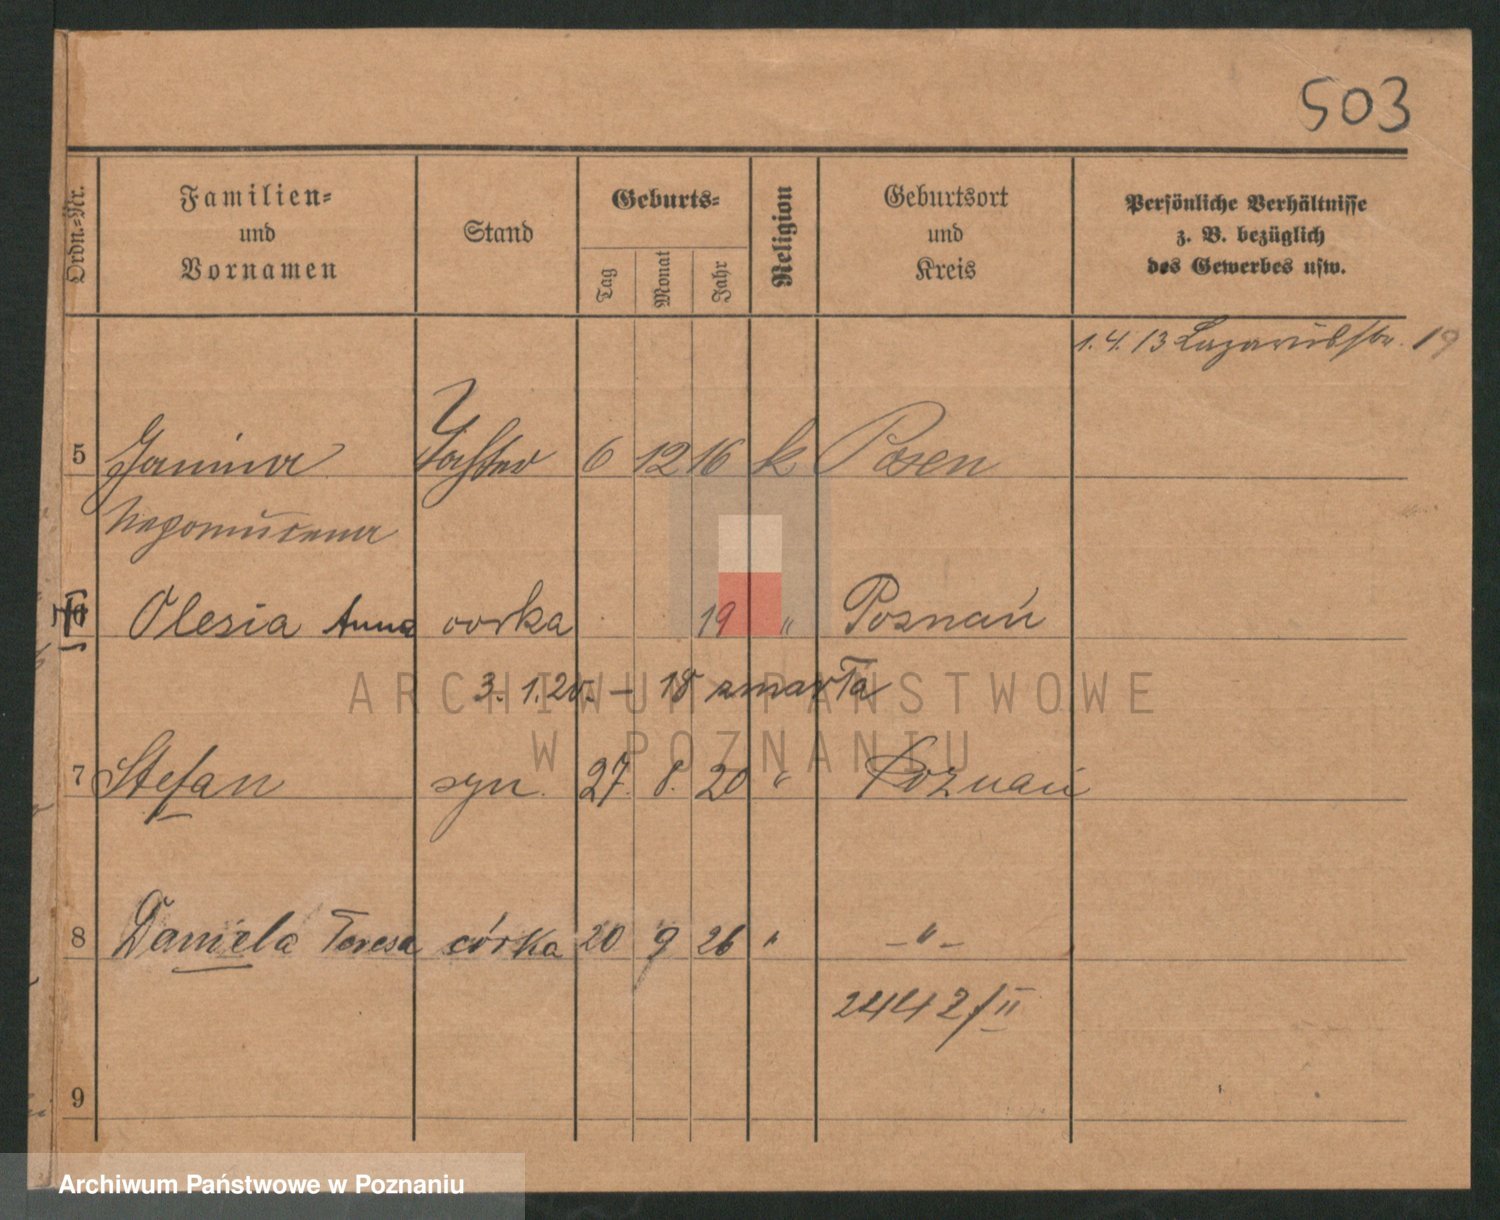 503
Ordn.-Nr.
Familien-
und
Vornamen
Stand
Geburts-
Tag
Monat
Jahr
Religion
Geburtsort
und
Kreis
Persönliche Verhältnisse
z. B. bezüglich
des Gewerbes usw.
1. 4. 13 Lazarusstr. 19
5 Janina Tochter 6 12 16 k Posen
Nepomucena
Olesia Anna corka 19 " Poznań
3. 1. 20. – 18 zmarła
ARCHIWUM PAŃSTWOWE
W POZNANIU
7 Stefan syn. 27. 8. 20 " Poznań
8 Daniela Teresa córka 20 9 26 " – " –
2442/II
9
Archiwum Państwowe w Poznaniu